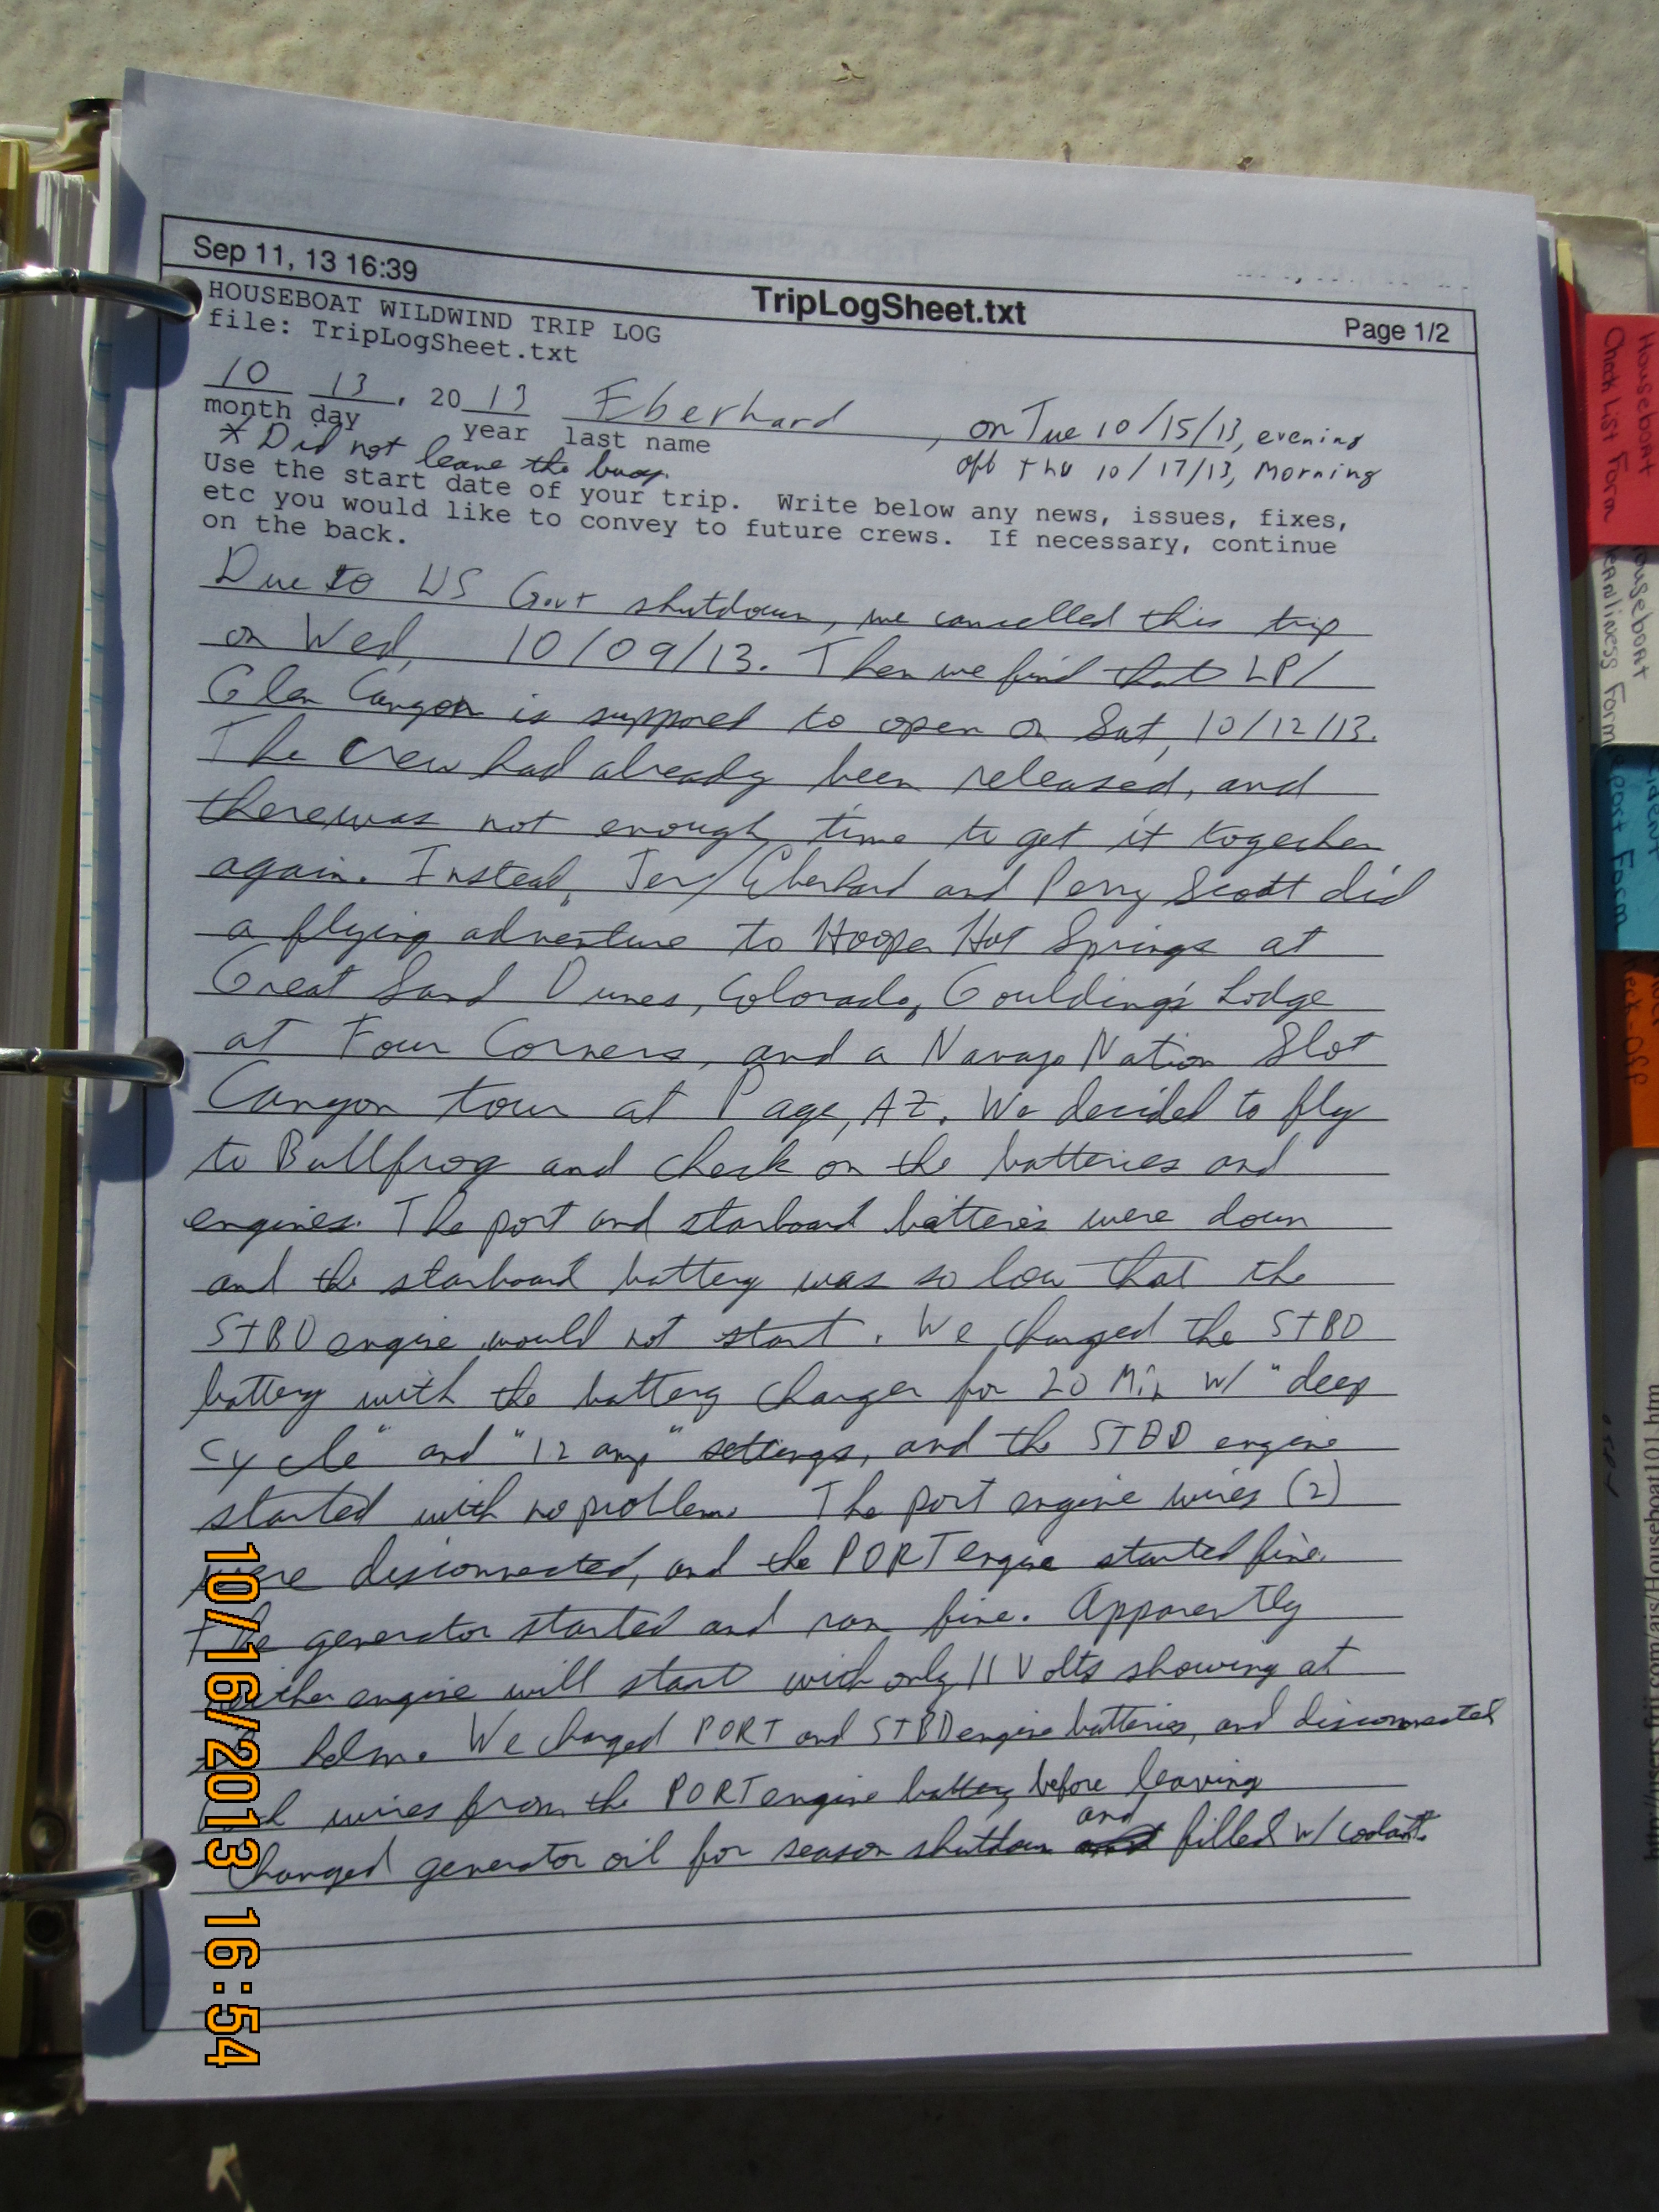 Sep 11, 13 16:39
TripLogSheet.txt
Page 1/2
HOUSEBOAT WILDWIND TRIP LOG
file: TripLogSheet.txt
10 13, 2013 Eberhard, on Tue 10/15/13, evening
month day year last name
off Thu 10/17/13, Morning
* Did not leave the buoy.
Use the start date of your trip. Write below any news, issues, fixes,
etc you would like to convey to future crews. If necessary, continue
on the back.
Due to US Govt shutdown, we cancelled this trip
on Wed, 10/09/13. Then we find that LP/
Glen Canyon is supposed to open on Sat, 10/12/13.
The crew had already been released, and
there was not enough time to get it together
again. Instead, Jer/Eberhard and Perry Scott did
a flying adventure to Hooper Hot Springs at
Great Sand Dunes, Colorado, Goulding's Lodge
at Four Corners, and a Navajo Nation Slot
Canyon tour at Page, AZ. We decided to fly
to Bullfrog and check on the batteries and
engines. The port and starboard batteries were down
and the starboard battery was so low that the
STBD engine would not start. We charged the STBD
battery with the battery charger for 20 Min w/ "deep
cycle" and "12 amp" settings, and the STBD engine
started with no problem. The port engine wires (2)
were disconnected, and the PORT engine started fine.
The generator started and ran fine. Apparently
either engine will start with only 11 Volts showing at
helm. We charged PORT and STBD engine batteries, and disconnected
wires from the PORT engine battery before leaving
Changed generator oil for season shutdown and filled w/ coolant.
10/16/2013 16:54
Houseboat
Check List Form
Houseboat
Cleanliness Form
Report Form
Check-Off
http://users.frii.com/ajs/Houseboat101.htm